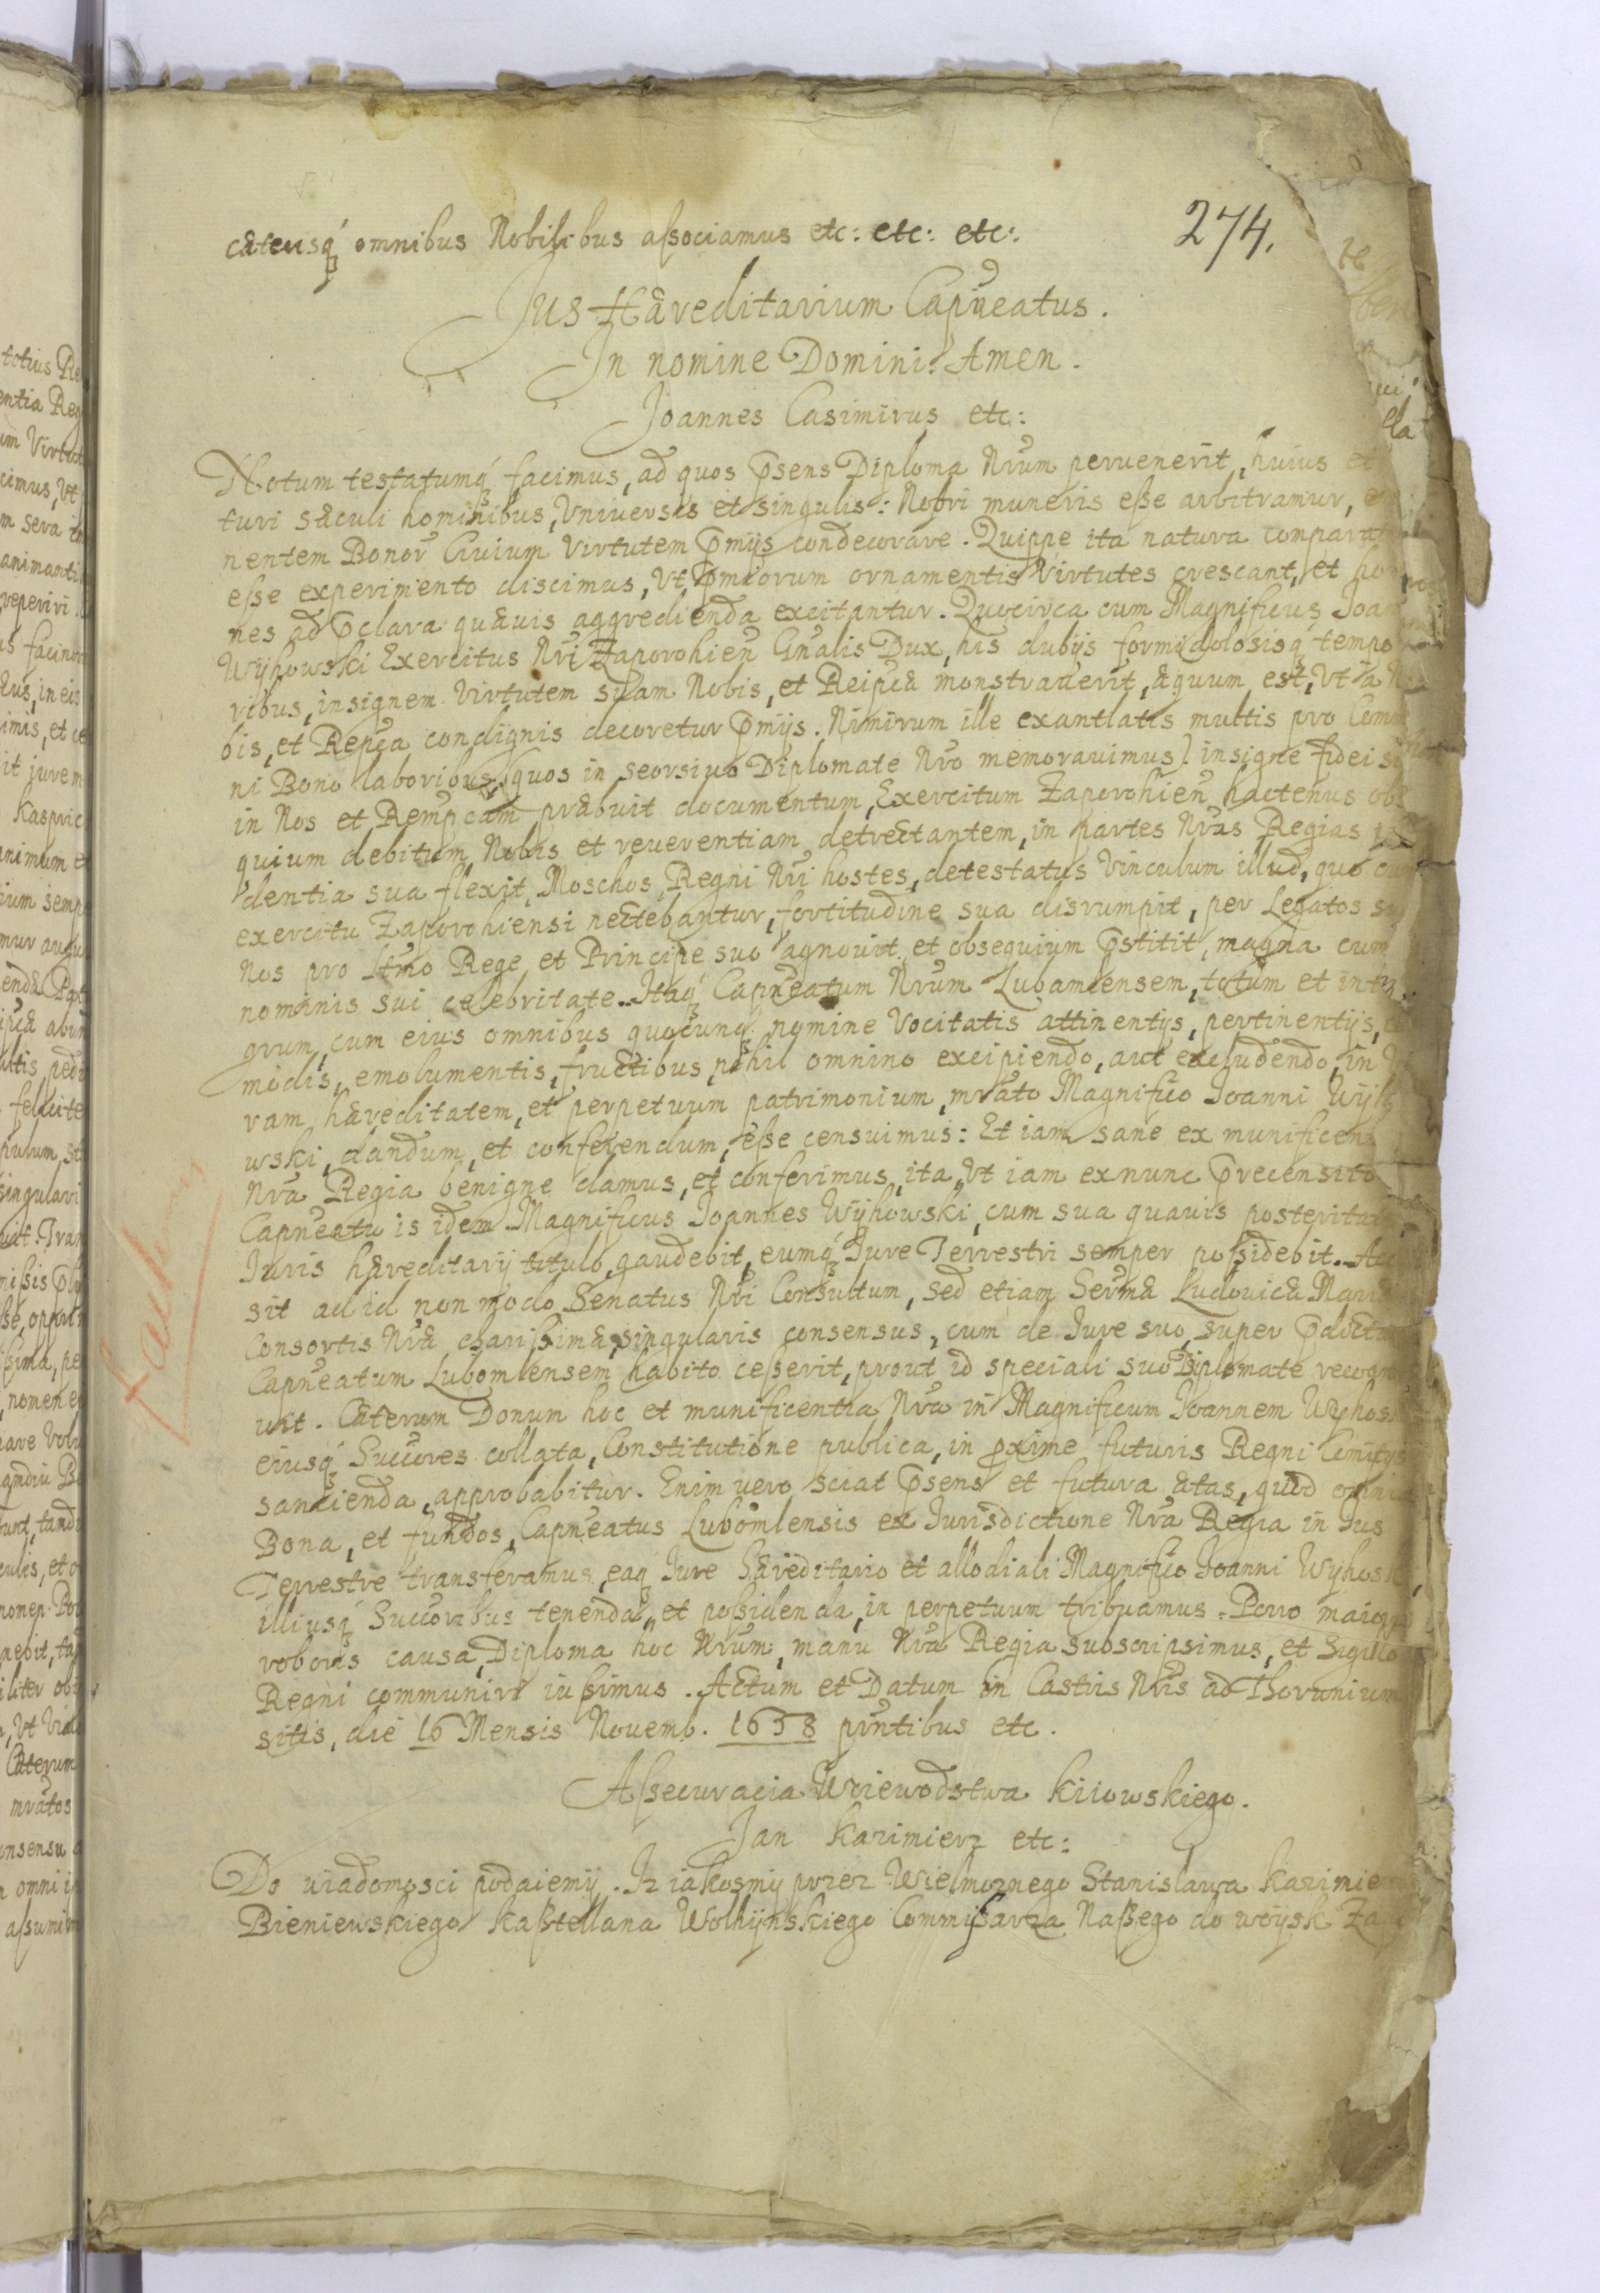 274.
cæterisq́ omnibus Nobilibus aſsociamus etc: etc: etc:
Jus Hæreditarium Capñeatus.
In nomine Domini. Amen.
Joannes Casimirus etc:
Notum testatumq́ facimus, ad quos p̃sens Diploma Nrũm peruenerit, huius et
turi sæculi hominibus, Vniuersis et singulis: Nostri muneris eſse arbitramur,
nentem Bonor̃ Ciuium Virtutem p̃mijs condecorare. Quippe ita natura comparatum
eſse experimento discimus, Vt p̃miorum ornamentis Virtutes crescant, et
nes ad p̃clara quæuis aggredienda excitantur. Quocirca cum Magnificus Joan
Wyhowski Exercitus Nrĩ Zaporohieñ Gñalis Dux, his dubijs formidolosisq́ tempo
ribus, insignem Virtutem suam Nobis, et Reipcæ monstrauerit, æquum est, Vt à No
bis, et Repca condignis decoretur p̃mijs. Nimirum ille exantlatis multis pro Comu
ni Bono laboribus, (quos in seorsiuo Diplomate Nrõ memorauimus) insigne fidei su
in Nos et Rempcam præbuit documentum, Exercitum Zaporohieñ hactenus obs
quium debitum Nobis et reuerentiam detrectantem, in partes Nrãs Regias
dentia sua flexit, Moschos, Regni Nrĩ hostes, detestatus Vinculum illud, quo cum
exercitu Zaporohiensi nectebantur, fortitudine sua disrumpit, per Legatos su
Nos pro Rege et Principe suo agnouit et obsequium p̃stitit, magna cum
nominis sui celebritate. Itaq́ Capñeatum Nrũm Lubomlensem, totum et inte
grum, cum eius omnibus quocunq́ nomine Vocitatis attinentijs, pertinentijs,
modis, emolumentis, fructibus, nihil omnino excipiendo, aut excludendo, in
ram hæreditatem, et perpetuum patrimonium, mrãto Magnifico Joanni Wyho
wski, dandum, et conferendum, eſse censuimus: Et iam sane ex munificen
Nrã Regia benigne damus, et conferimus, ita, Vt iam ex nunc p̃recensito
Capñeatu is idem Magnificus Joannes Wyhowski, cum sua quauis posteritat
Juris hæreditarij titulo, gaudebit, eumq́ Jure Terrestri semper poſsidebit. Acc
sit ad id non modo Senatus Nrĩ Consultum, sed etiam Serm̃æ Ludouicæ Mari
Consortis Nræ chariſsimæ, singularis consensus, cum de Jure suo, super p̃dictu
Capñeatum Lubomlensem habito ceſserit, prout id speciali suo Diplomate recogn
uit. Cæterum Donum hoc et munificentia Nrã in Magnificum Joannem Wyhows
eiusq́ Succores collata, Constitutione publica, in proxime futuris Regni Comitijs
sancienda, approbabitur. Enim uero sciat p̃sens et futura ætas, quod omnia
Bona, et fundos, Capñeatus Lubomlensis ex Jurisdictione Nrã Regia in Jus
Terrestre transferamus, eaq́ Jure Hæreditario et allodiali Magnifico Joanni Wyhosk
illiusq́ Succoribus tenenda, et poſsidenda, in perpetuum tribuamus. Porro maiori
roboris causa, Diploma hoc Nrũm, manu Nrã Regia subscripsimus, et Sigillo
Regni communiri iuſsimus. Actum et Datum in Castris Nrĩs ad Thorunium
sitis, die 16 Mensis Nouemb. 1658 prñtibus etc.
Aſsecuracia Woiewodstwa Kiiowskiego.
Jan Kazimierz etc:
Do wiadomosci podaiemy. Iz iakosmy przez Wielmoznego Stanislawa Kazimie
Bieniewskiego Kasztellana Wolhynskiego Commiſsarza Naszego do woysk Zap